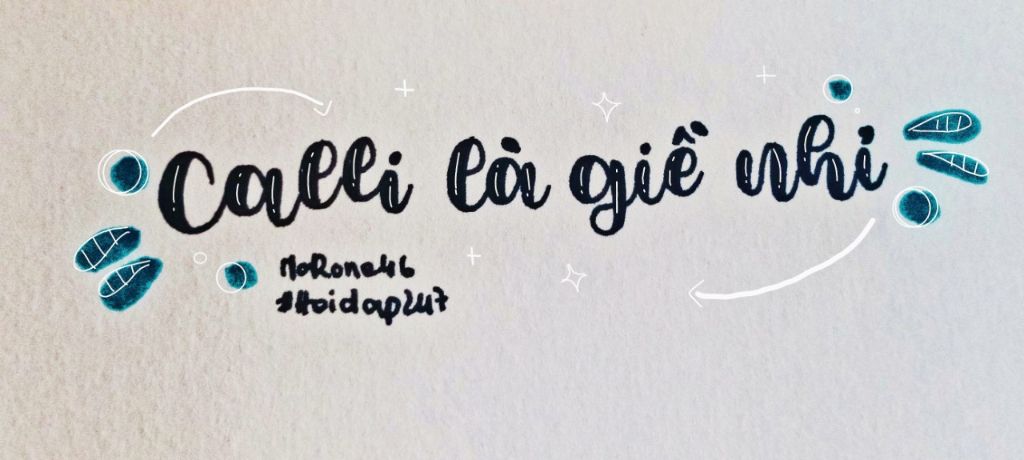 Calli là giề nhỉ
MoRone46
#Hoidap247